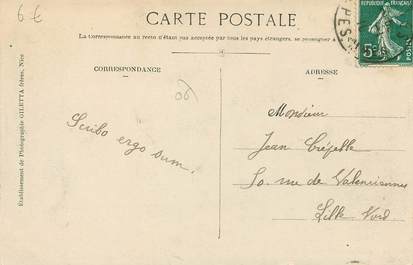 6 €
CARTE POSTALE
La Correspondance au recto n'étant pas acceptée par tous les pays étrangers, se renseigner à
RÉPUBLIQUE FRANÇAISE
5c
POSTES
PES
CORRESPONDANCE
ADRESSE
06
Scribo ergo sum.
Monsieur
Jean Crépelle
rue de Valenciennes
Lille Nord
Établissement de Photographie GILETTA frères, Nice